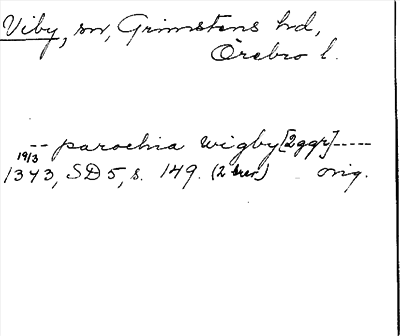 Viby, sn, Grimstens hd,
Örebro l.
-- parochia wigby [2ggr] -----
19/3
1343, SD 5, s. 149. (2 brev) orig.